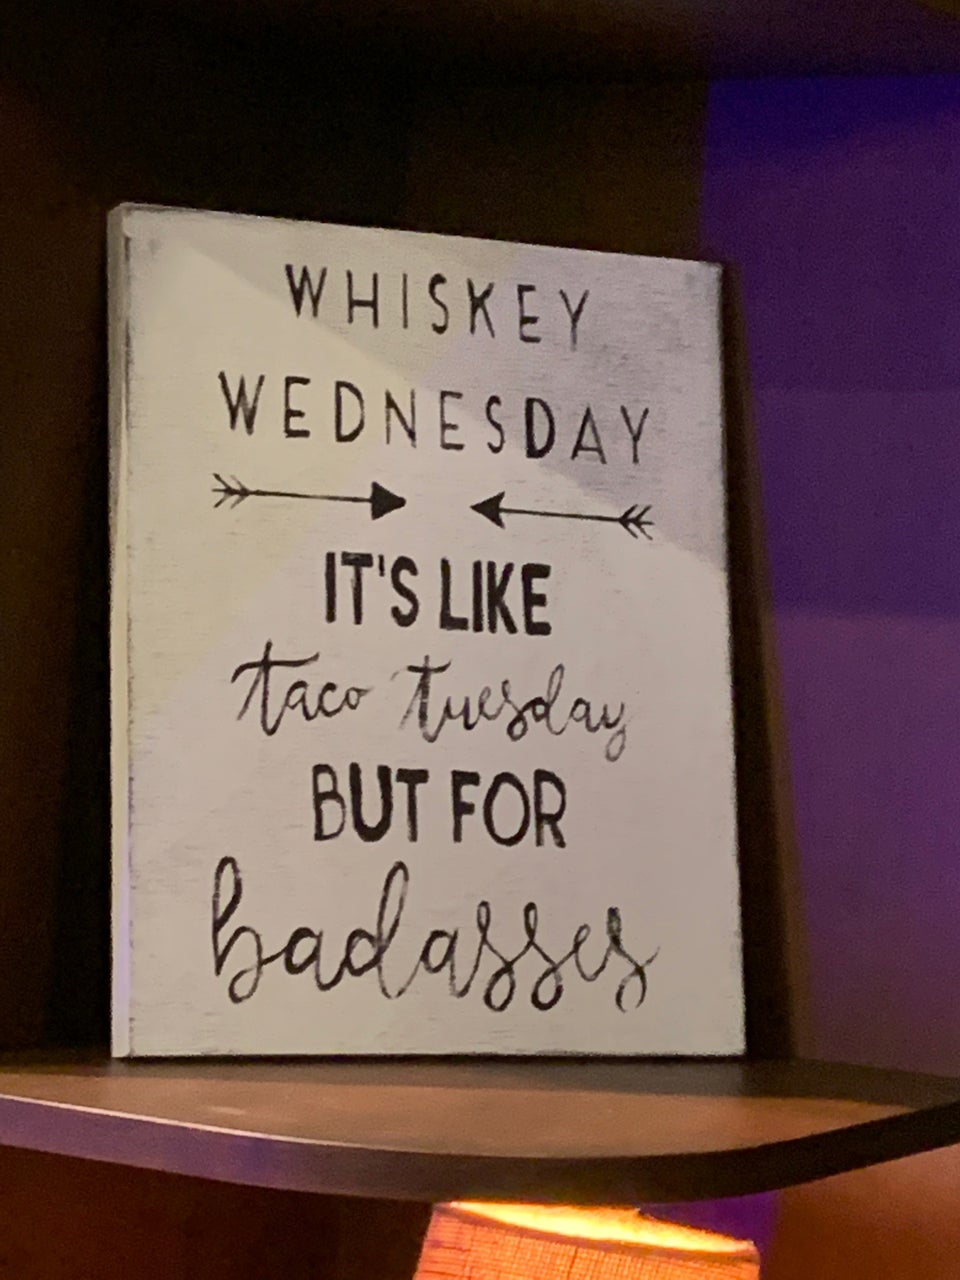 WHISKEY
WEDNESDAY
IT'S LIKE
taco tuesday
BUT FOR
badasses